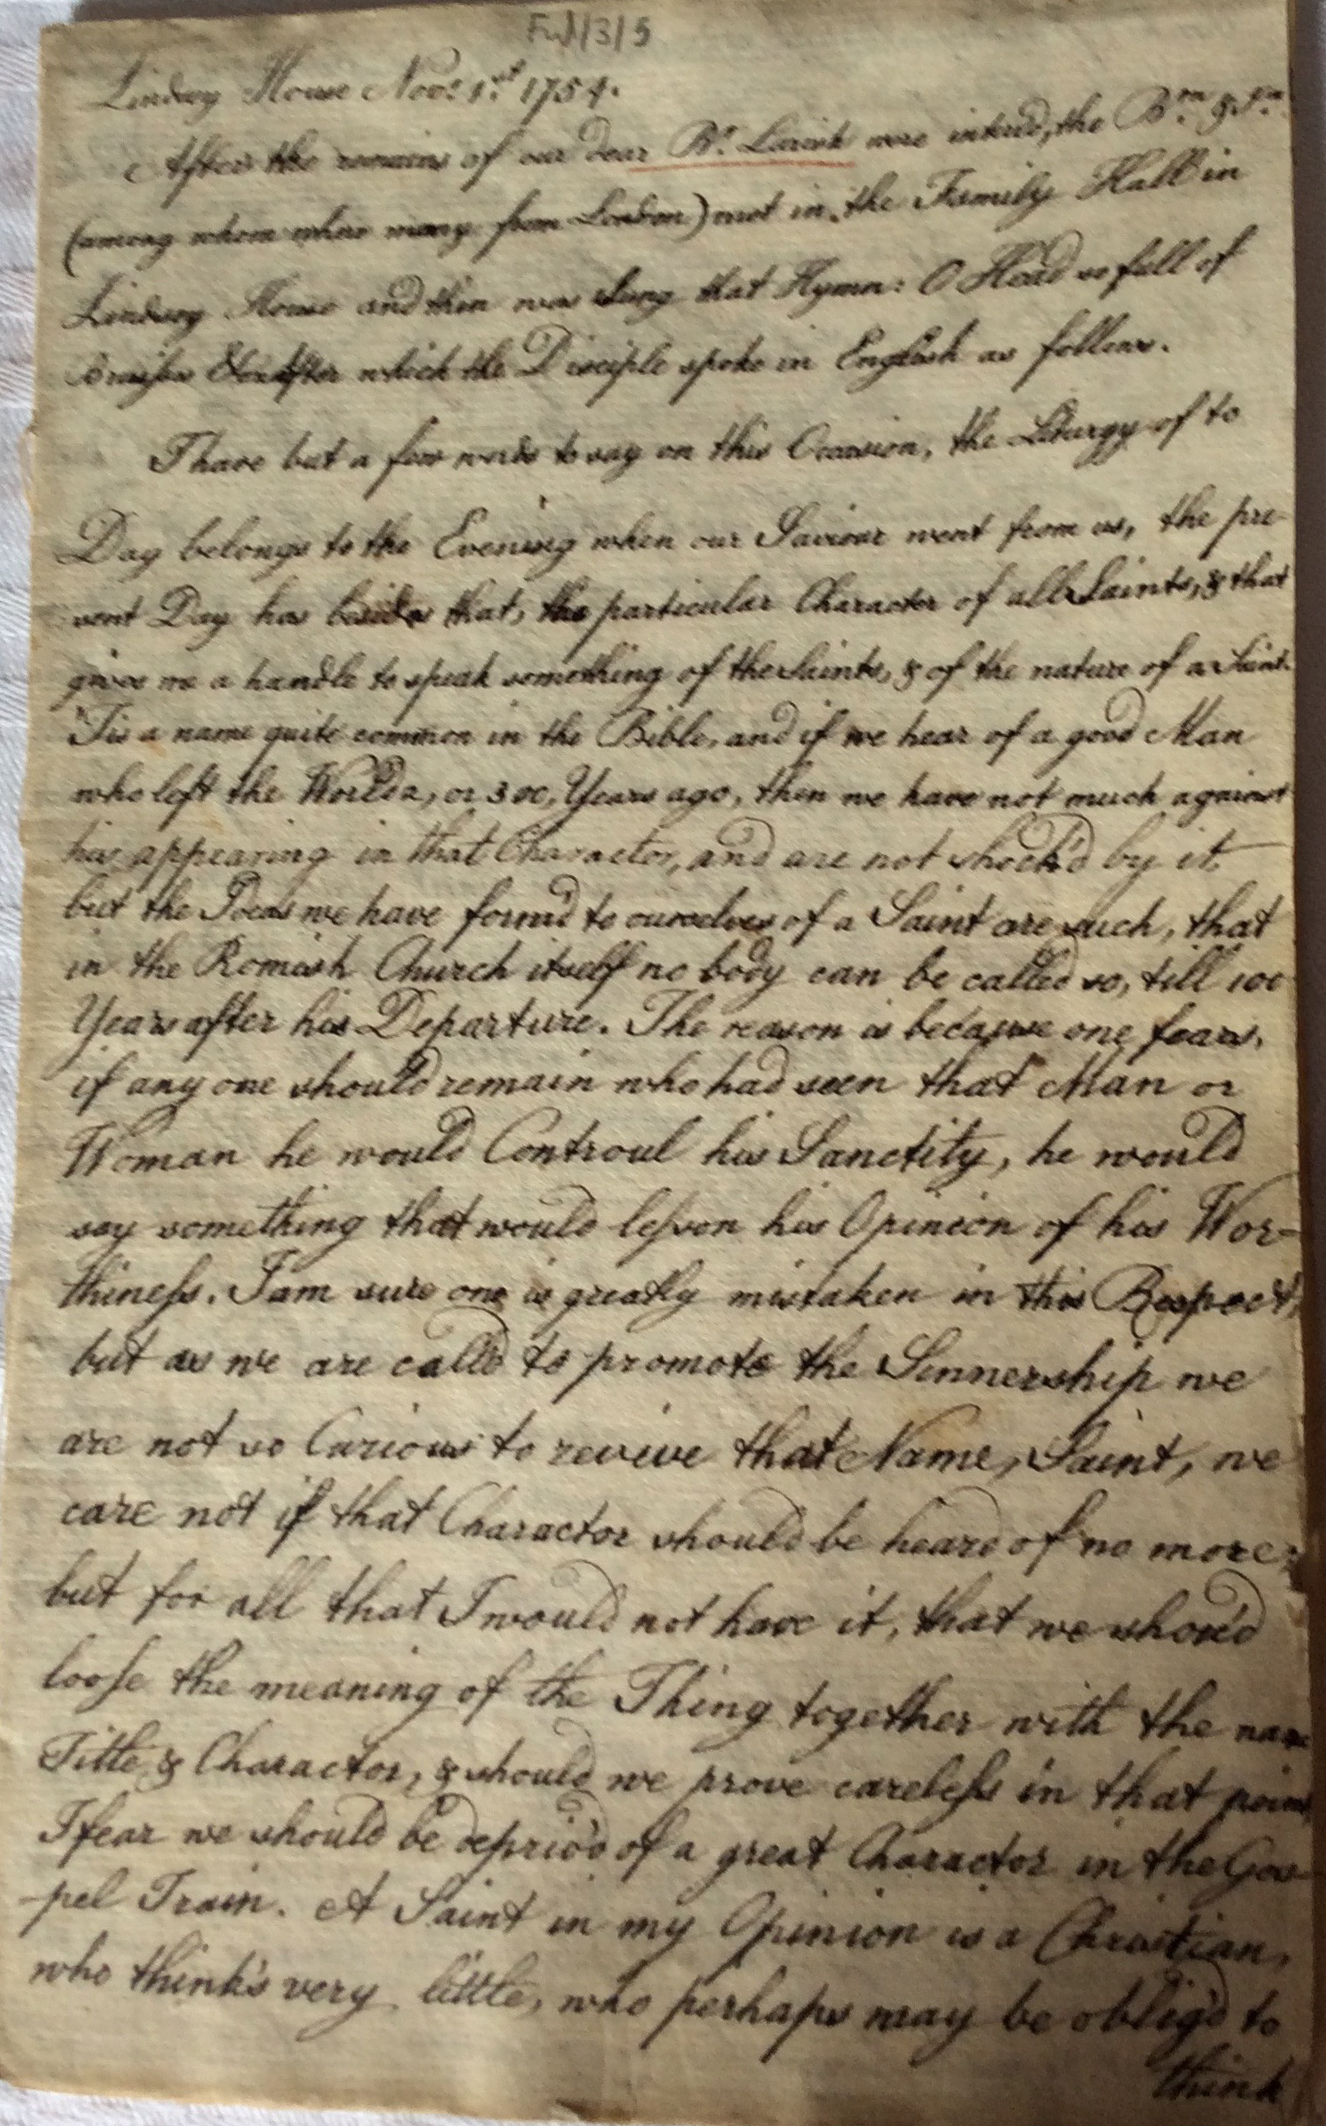 Ful/3/5
Lindsey House Novr. 1.st 1754.
After the remains of our dear Br. Larish were interd, the Brn & Srs.
(among whom where many from London) met in the Family Hall in
Lindsey House and then was Sung that Hymn: O Head so full of
Bruises &c after which the Disciple spoke in English as follows.
I have but a few words to say on this Occasion, the Liturgy of to
Day belongs to the Evening when our Saviour went from us, the pre-
sent Day has besides that, the particular Character of all Saints, & that
gives me a handle to speak something of the Saints, & of the nature of a Saint.
'Tis a name quite common in the Bible, and if we hear of a good Man
who left the World 2, or 300, Years ago, then we have not much against
his appearing in that Character, and are not shock'd by it
but the Ideas we have form'd to ourselves of a Saint are such, that
in the Romish Church itself no body can be called so, till 100
Years after his Departure. The reason is because one fears,
if any one should remain who had seen that Man or
Woman he would Controul his Sanctity, he would
say something that would lesson his Opinion of his Wor-
thiness. I am sure one is greatly mistaken in this Respect,
but as we are call'd to promote the Sinnership we
are not so Curious to revive that Name, Saint, we
care not if that Charactor should be heard of no more;
but for all that I would not have it, that we shou'd
loose the meaning of the Thing together with the name
Title & Charactor, & should we prove careless in that point,
I fear we should be depriv'd of a great Charactor in the Gos-
-pel Train. A Saint in my Opinion is a Christian,
who think's very little, who perhaps may be oblig'd to
think